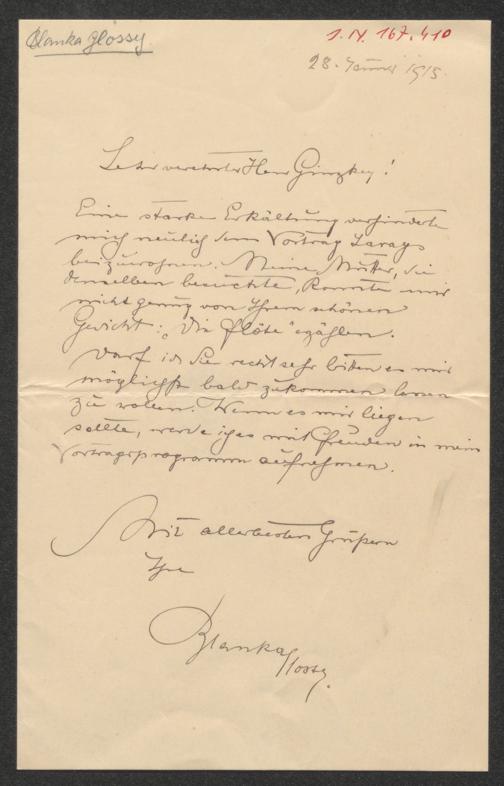 Blanka Glossy.
I.N. 167.410
28. Januar 1915.
Sehr verehrter Herr Ginzkey!
Eine starke Erkältung verhinderte
mich neulich dem Vortrag Zarays
beizuwohnen. Meine Mutter, die
denselben besuchte, konnte mir
nicht genug von Ihrem schönen
Gedicht: „Die Flöte" erzählen.
Darf ich Sie recht sehr bitten es mir
möglichst bald zukommen lassen
zu wollen. Wenn es mir liegen
sollte, werde ich es mit Freuden in mein
Vortragsprogramm aufnehmen.
Mit allerbesten Grüßen
Ihre
Blanka Glossy.